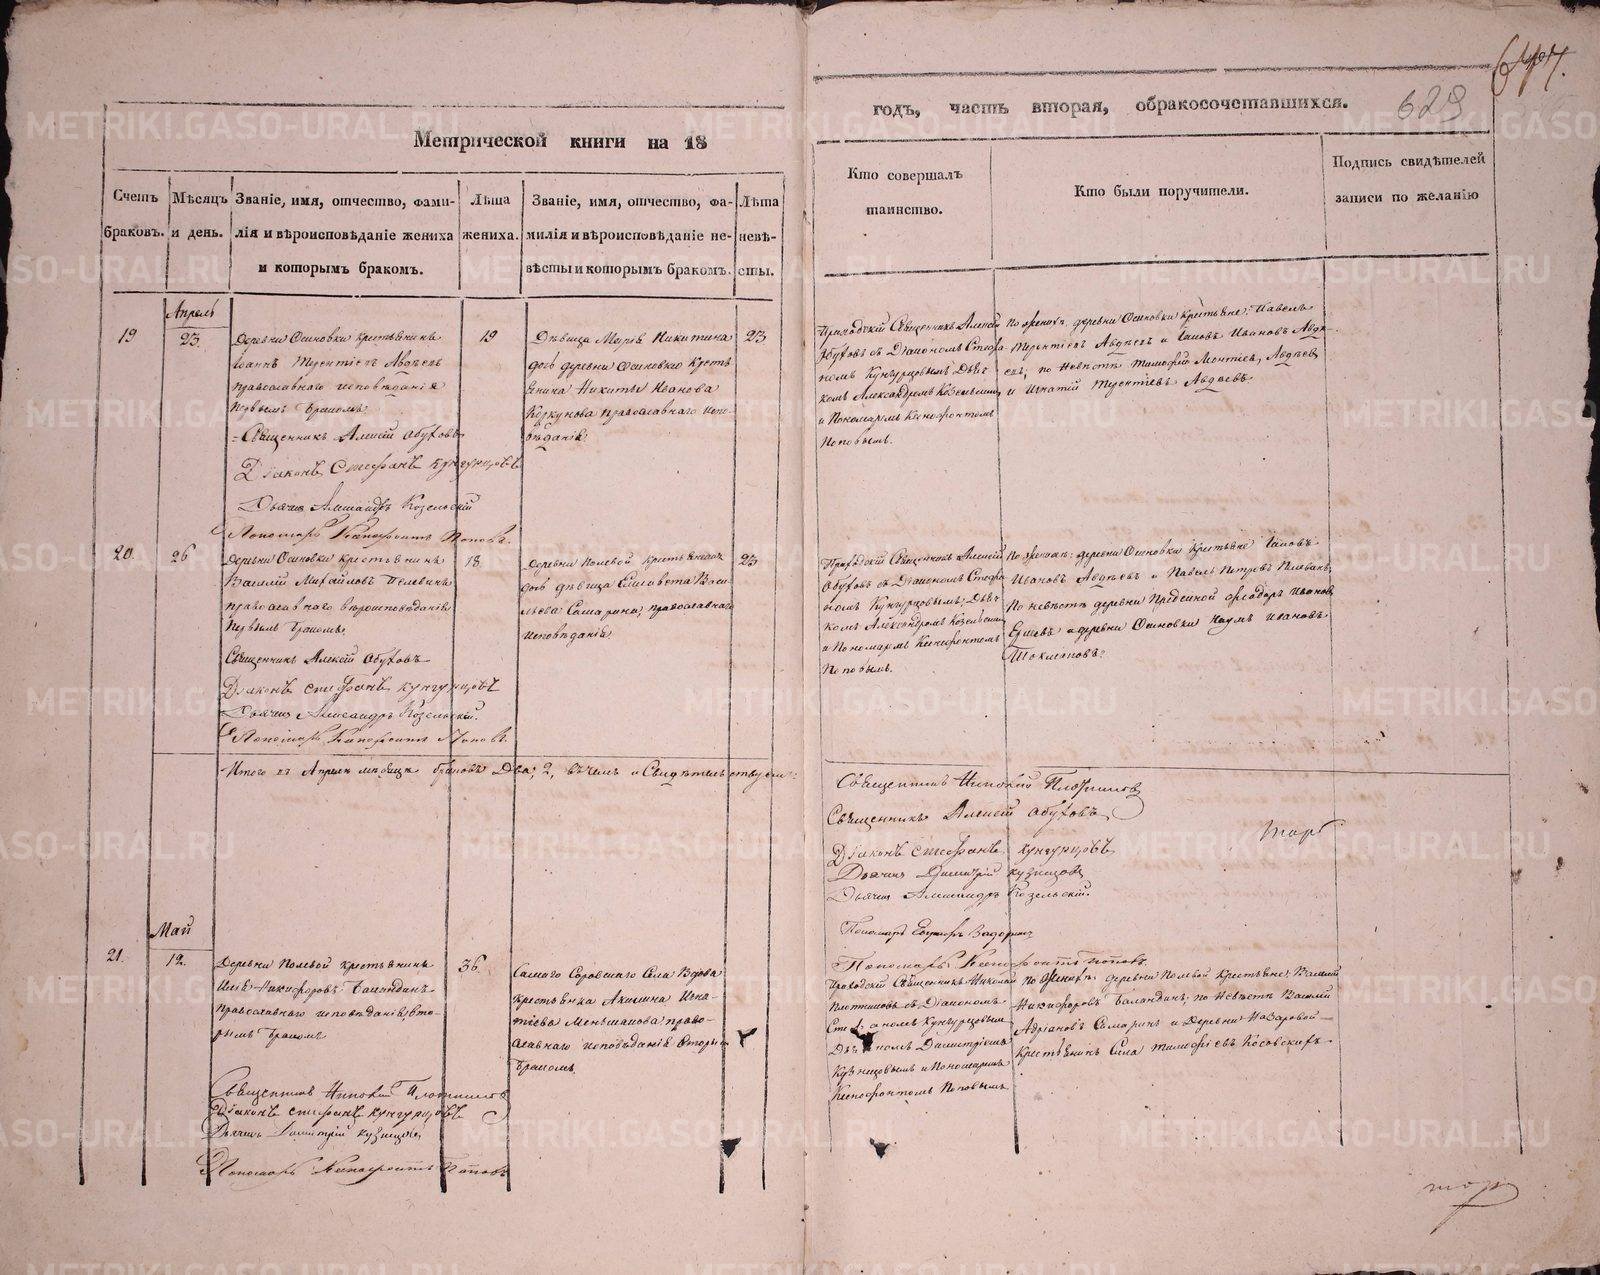 Метрической книги на 18
годъ, часть вторая, обракосочетавшихся.
629
Счетъ браковъ.
Мѣсяцъ и день.
Званіе, имя, отчество, фамилія и вѣроисповѣданіе жениха и которымъ бракомъ.
Лѣта жениха.
Званіе, имя, отчество, фамилія и вѣроисповѣданіе невѣсты и которымъ бракомъ.
Лѣта невѣсты.
Кто совершалъ таинство.
Кто были поручители.
Подпись свидѣтелей записи по желанію
Апрель
19
23.
Деревни Осиновки крестьянинъ
Іоаннъ Терентіевъ Авдѣевъ
православнаго исповѣданія
первымъ бракомъ
Священникъ Алексій Обуховъ
Діаконъ Стефанъ Кунгурцовъ
Дьячекъ Александръ Козельскій
Пономарь Ксенофонтъ Поповъ.
19
Дѣвица Марія Никитина
дочь деревни Осиновки крестьянина Никиты Иванова
православнаго исповѣданія
23
Приходскій Священникъ Алексій
Обуховъ съ Діакономъ Стефаномъ Кунгурцовымъ, Дьячкомъ Александромъ Козельскимъ
и Пономаремъ Ксенофонтомъ
Поповымъ.
По женихѣ: деревни Осиновки крестьяне: Павелъ
Терентіевъ Авдѣевъ и Іаковъ Ивановъ Авдѣевъ; по невѣстѣ Тимофей Авдѣевъ
и Игнатій Терентіевъ Авдѣевъ.
20.
26
Деревни Осиновки крестьянинъ
Василій Михайловъ
православнаго вѣроисповѣданія
первымъ бракомъ.
Священникъ Алексій Обуховъ
Діаконъ Стефанъ Кунгурцовъ
Дьячекъ Александръ Козельскій.
Пономарь Ксенофонтъ Поповъ
18.
Деревни Полевой крестьянская
дочь дѣвица Елисавета Васильева Самарина, православнаго
исповѣданія
23
Приходскій Священникъ Алексій
Обуховъ съ Діакономъ Стефаномъ Кунгурцовымъ, Дьячкомъ Александромъ Козельскимъ
и Пономаремъ Ксенофонтомъ
Поповымъ.
По женихѣ: деревни Осиновки крестьяне Іаковъ
Ивановъ Авдѣевъ и Павелъ Петровъ
по невѣстѣ деревни Ѳеодоръ Ивановъ
Ершевъ и деревни Осиновки Наумъ Ивановъ
Итого въ Апрелѣ мѣсяцѣ браковъ два, 2, въ чемъ и свидѣтельствуемъ:
Священникъ Николай Плотниковъ
Священникъ Алексій Обуховъ
Діаконъ Стефанъ Кунгурцовъ
Дьячекъ Димитрій Кузнецовъ
Дьячекъ Александръ Козельскій.
Пономарь Задоринъ
Пономарь Ксенофонтъ Поповъ.
Май
21.
12.
Деревни Полевой крестьянинъ
Илья Никифоровъ Баландинъ
православнаго исповѣданія, вторымъ бракомъ
Священникъ Николай Плотниковъ
Діаконъ Стефанъ Кунгурцовъ
Дьячекъ Димитрій Кузнецовъ
Пономарь Ксенофонтъ Поповъ
36.
Самаго Соровскаго Села вдова
крестьянка Акилина Игнатіева Меньшакова православнаго исповѣданія вторымъ
бракомъ.
Приходскій Священникъ Николай
Плотниковъ съ Діакономъ
Стефаномъ Кунгурцовымъ
Дьячкомъ Димитріемъ
Кузнецовымъ и Пономаремъ
Ксенофонтомъ Поповымъ
По женихѣ: деревни Полевой крестьяне: Василій
Никифоровъ Баландинъ; по невѣстѣ Василій
Адріановъ Самаринъ и деревни Назаровой
крестьянинъ Сила Тимофеевъ Косовскихъ
METRIKI.GASO-URAL.RU